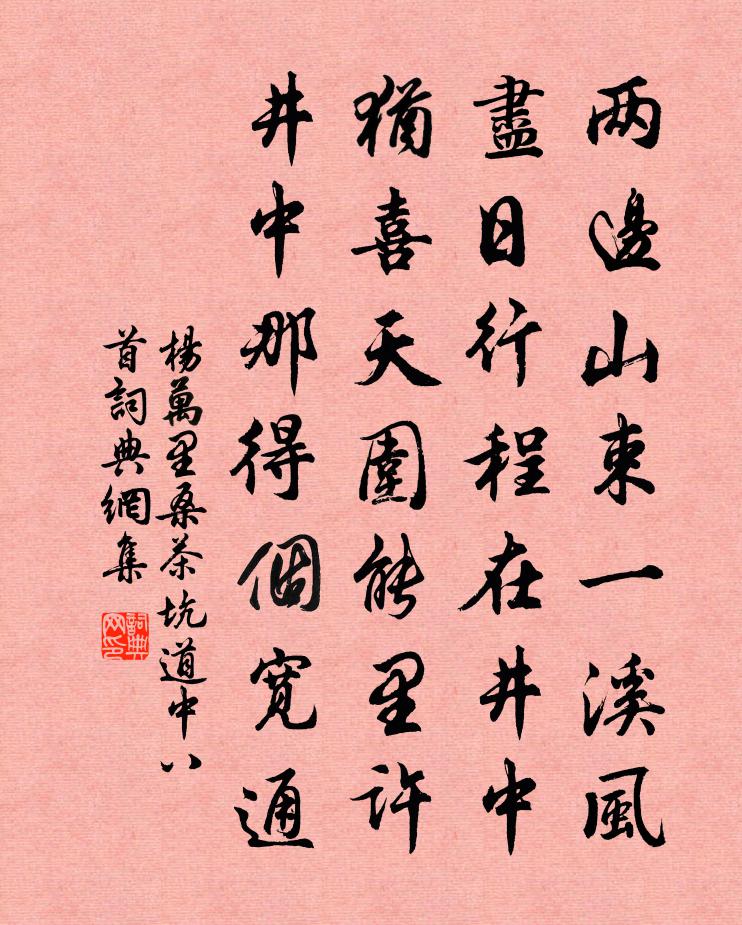 两邊山束一溪風
盡日行程在井中
猶喜天圍能里許
井中那得個寬通
楊萬里桑茶坑道中八
首詞典網集
詞典
网印